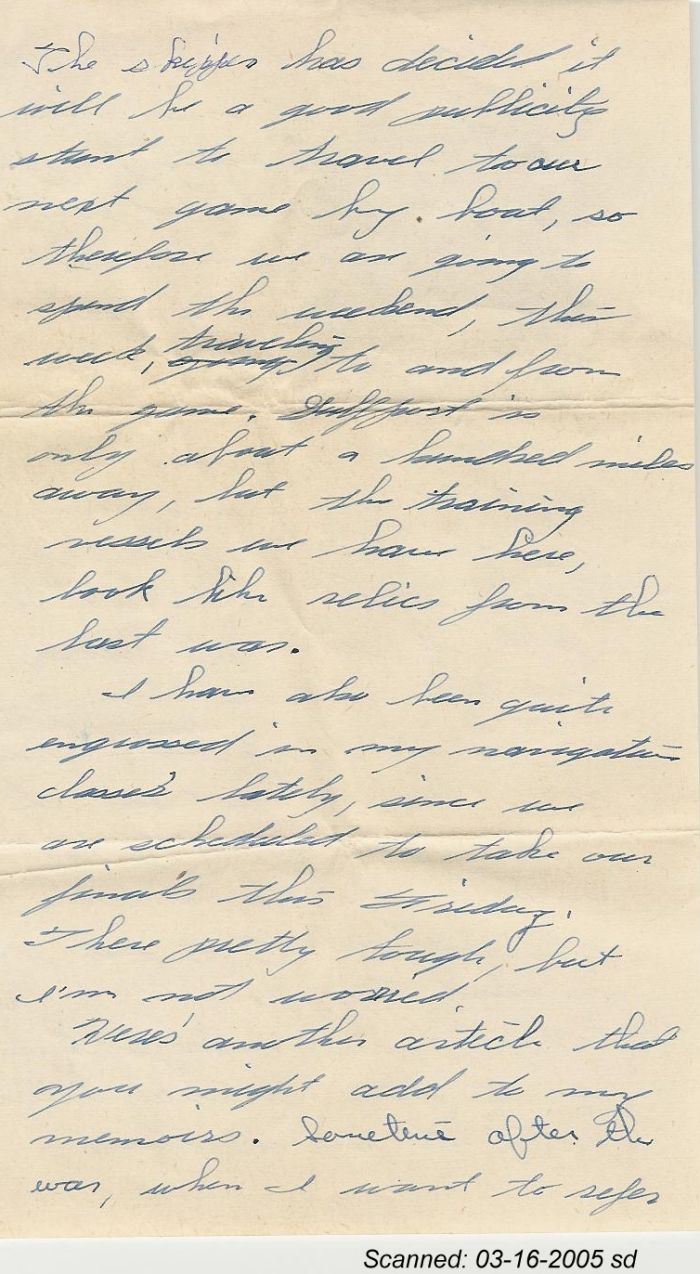 The skipper has decided it
will be a good publicity
stunt to travel to our
next game by boat, so
therefore we are going to
spend the weekend, this
week, traveling to and from
the game. Gulfport is
only about a hundred miles
away, but the training
vessels we have here,
look like relics from the
last war.
I have also been quite
engrossed in my navigation
classes lately, since we
are scheduled to take our
finals this Friday.
There pretty tough, but
I'm not worried.
Here's another article that
you might add to my
memoirs. Sometime after the
war, when I want to refer
Scanned: 03-16-2005 sd